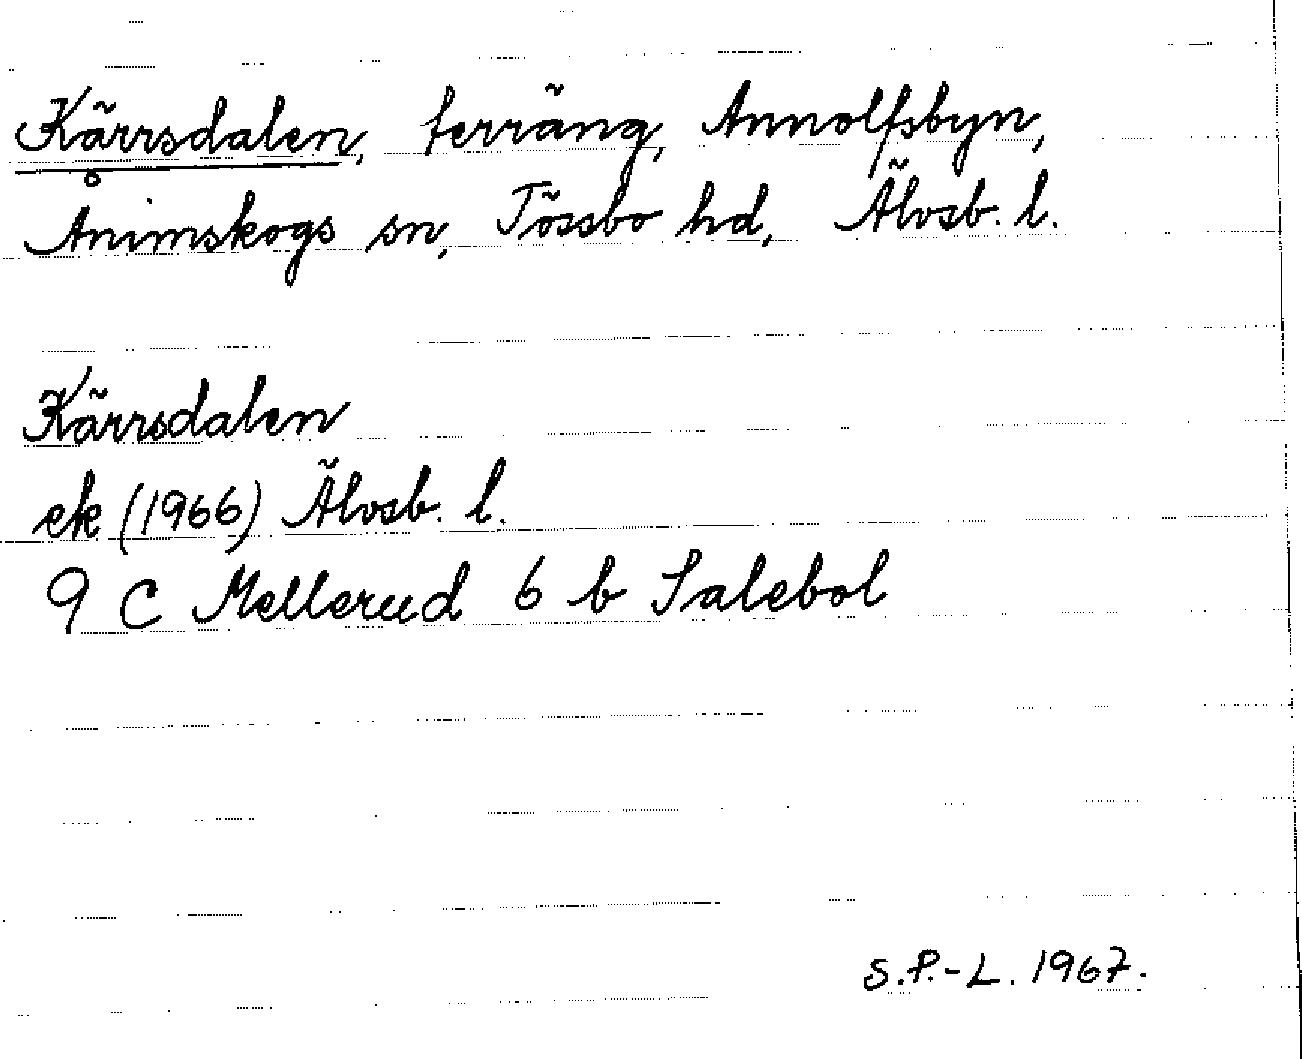 Kärrsdalen, terräng, Annolfsbyn,
Ånimskogs sn, Tössbo hd, Älvsb. l.
Kärrsdalen
ek (1966) Älvsb. l.
9 C Mellerud 6 b Salebol
S.P.-L. 1967.